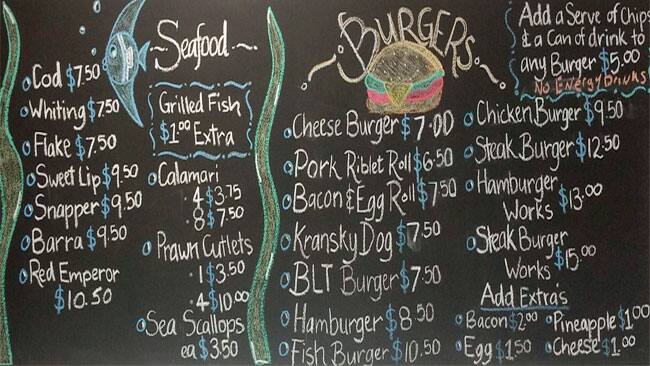 Seafood
Cod $7.50
Whiting $7.50
Flake $7.50
Sweet Lip $9.50
Snapper $9.50
Barra $9.50
Red Emperor
$10.50
Grilled Fish
$1.00 Extra
Calamari
4 $3.75
8 $7.50
Prawn Cutlets
1 $3.50
4 $10.00
Sea Scallops
ea $3.50
BURGERS
Cheese Burger $7.00
Pork Riblet Roll $6.50
Bacon & Egg Roll $7.50
Kransky Dog $7.50
BLT Burger $7.50
Hamburger $8.50
Fish Burger $10.50
Add a Serve of Chips
& a Can of drink to
any Burger $5.00
No Energy Drinks
Chicken Burger $9.50
Steak Burger $12.50
Hamburger
Works $13.00
Steak Burger
Works $15.00
Add Extra's
Bacon $2.00 Pineapple $1.00
Egg $1.50 Cheese $1.00